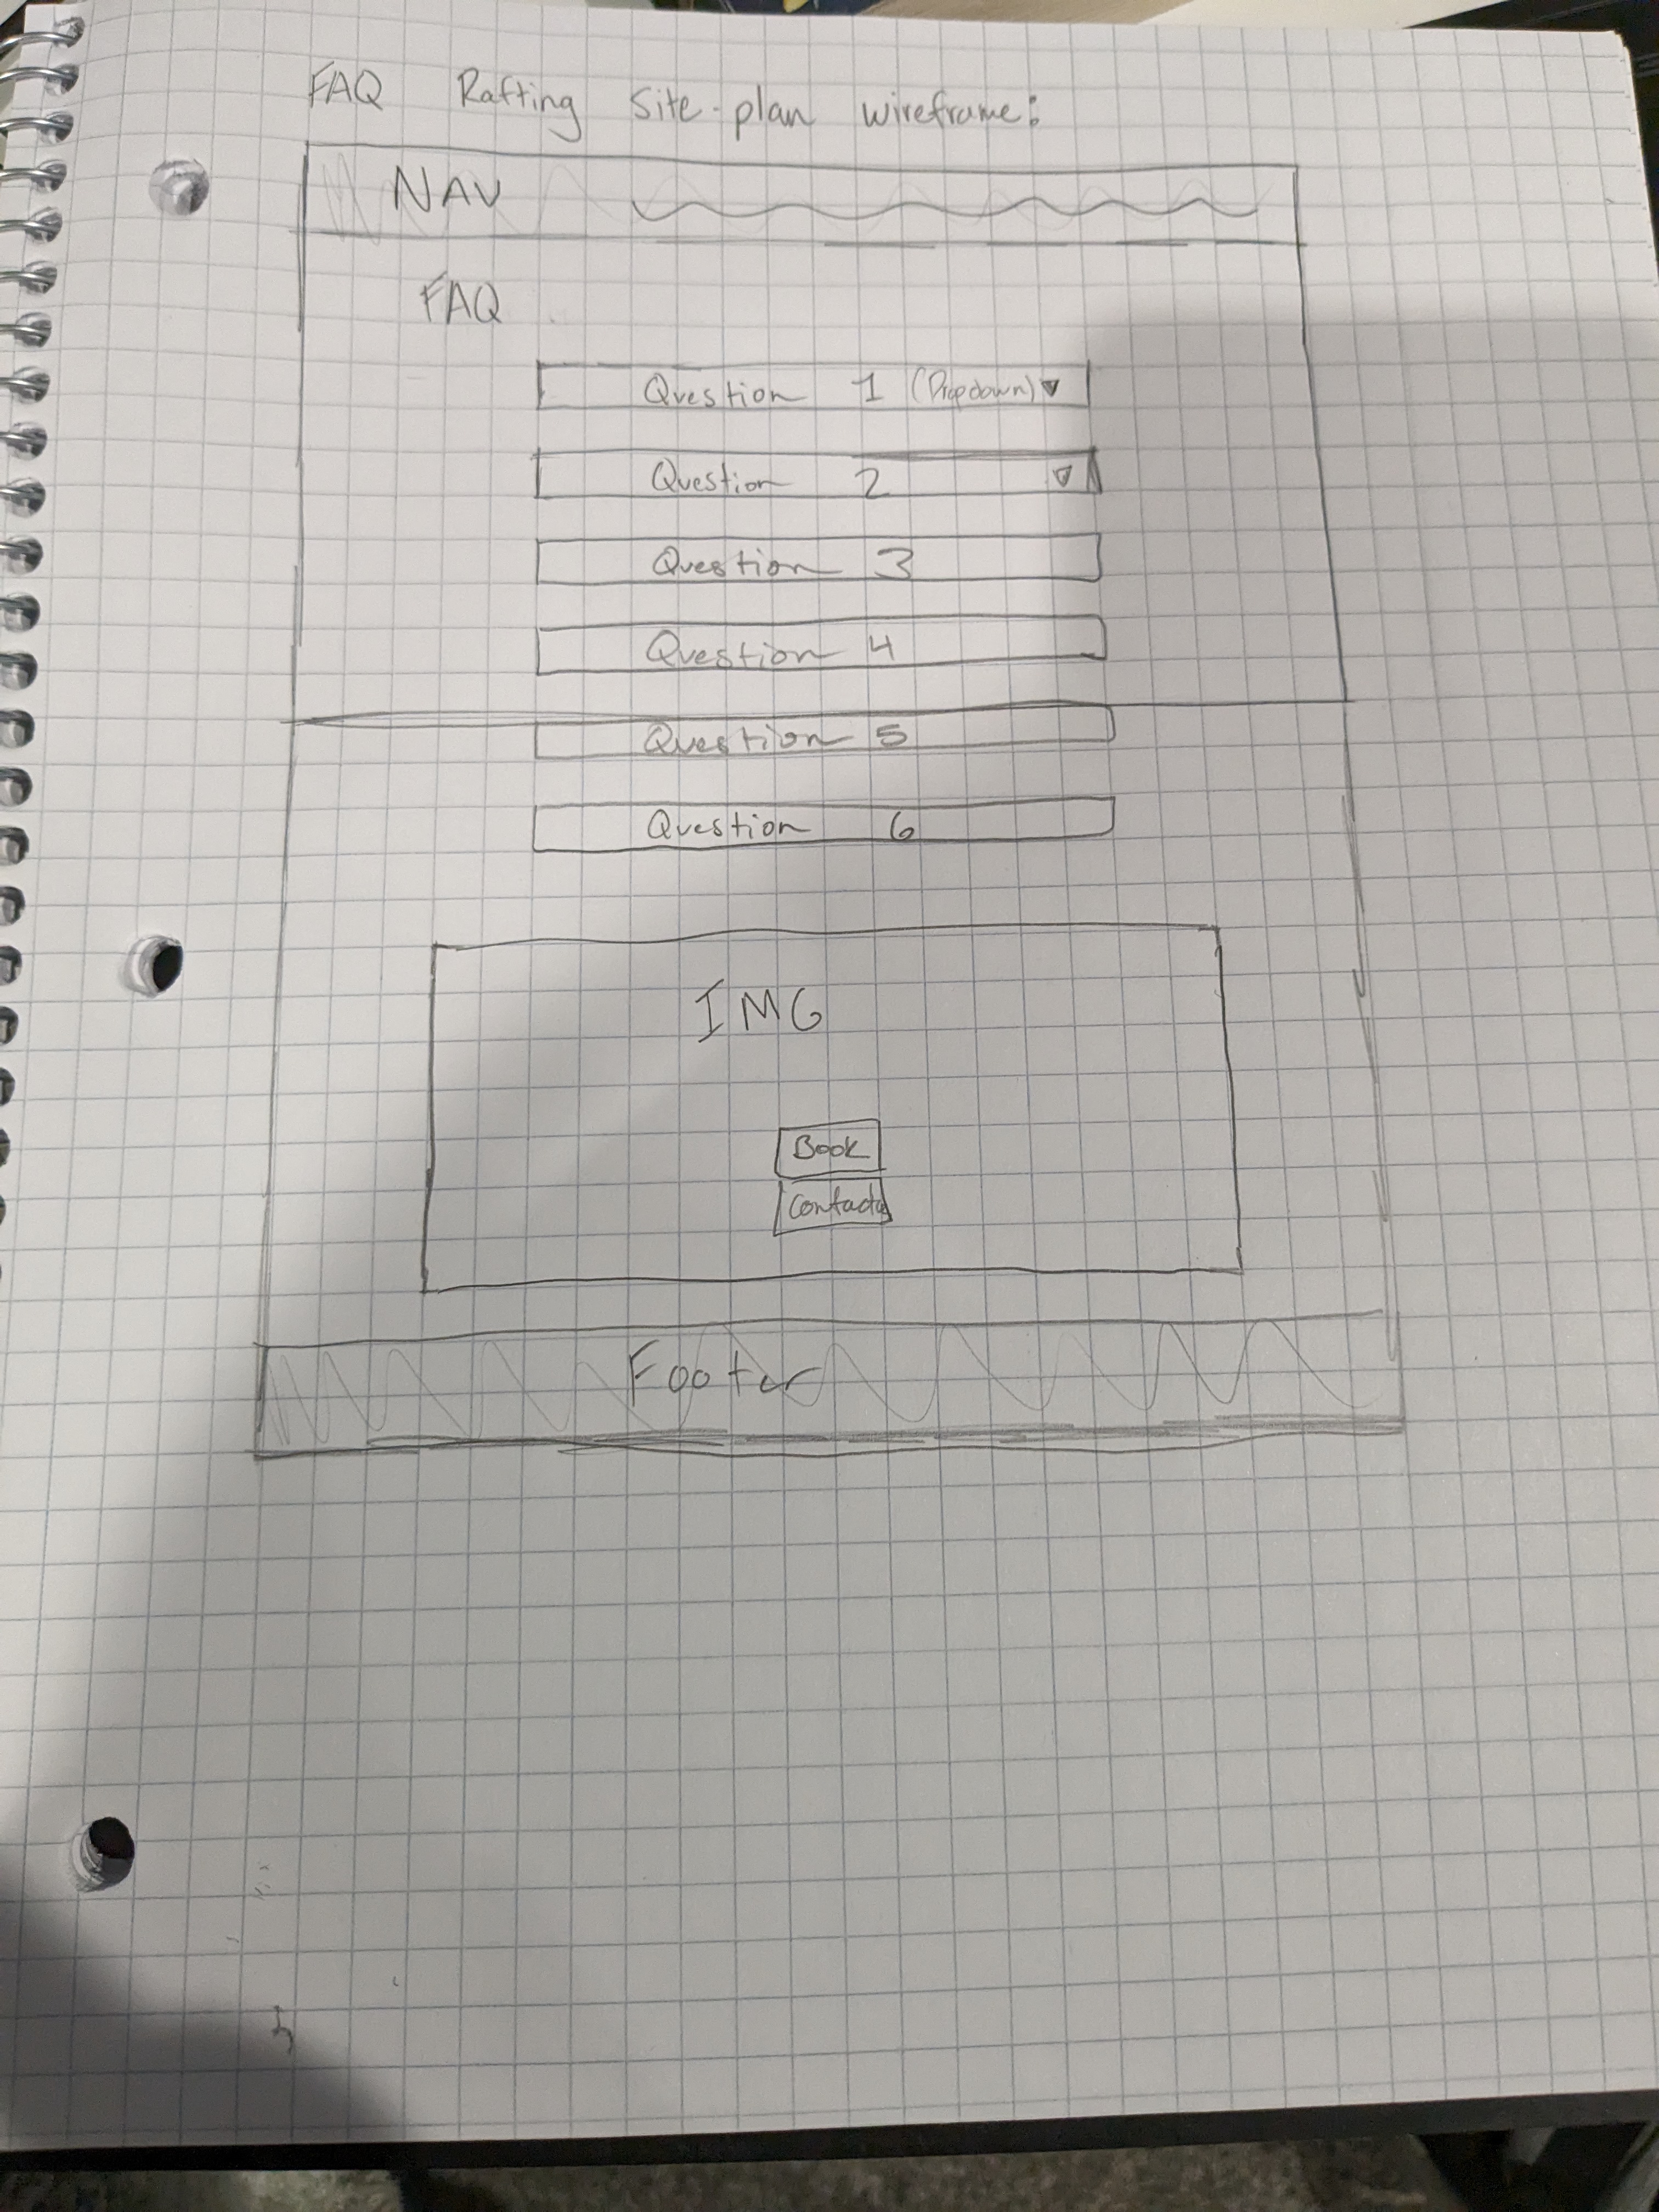 FAQ Rafting Site-plan wireframe:
NAV
FAQ
Question 1 (Dropdown)
Question 2
Question 3
Question 4
Question 5
Question 6
IMG
Book
Contact
Footer